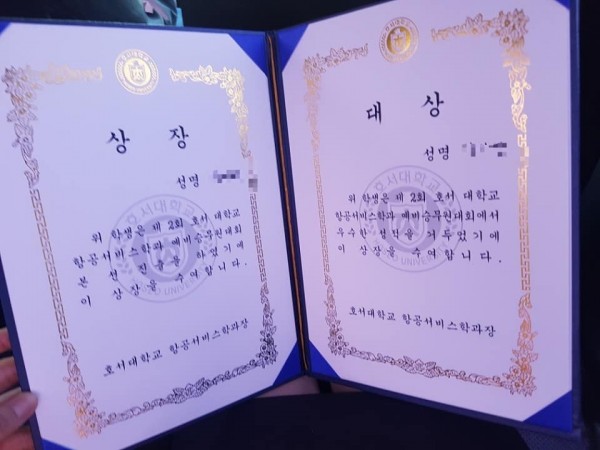 상 장
성명
위 학생은 제 2회 호서 대학교
항공서비스학과 예비승무원대회
본 선 진출을 하였기에
이 상장을 수여합니다.
호서대학교 항공서비스학과장
대 상
성명
위 학생은 제 2회 호서 대학교
항공서비스학과 예비승무원대회에서
우수한 성적을 거두었기에
이 상장을 수여합니다.
호서대학교 항공서비스학과장